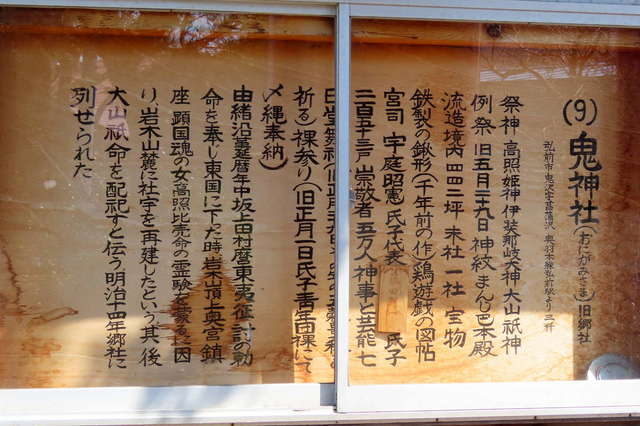 (9)鬼神社(おにがみさま)旧郷社
弘前市鬼沢字菖蒲沢 奥羽本線弘前駅より三粁
祭神 高照姫神 伊弉那岐大神 大山祇神
例祭 旧五月二十九日 神紋 まんじ巴 本殿
流造 境内 四四二坪 末社 一社 宝物
鉄製の鍬形(千年前の作)鶏遊戯の図帖
宮司 宇庭昭憲 氏子代表 氏子
二百五十三戸 崇敬者 五万人 神事と芸能 七
日堂舞祓(旧正月
祈る)裸参り(旧正月一日氏子青年団裸にて
〆縄奉納)
由緒沿革 延暦年中坂上田村麿東夷征討の勅
命を奉じ東国に下った時岩木山頂上奥宮鎮
座 顕国魂の女高照比売命の霊験を蒙るに因
り、岩木山麓に社宇を再建したという其後
大山祇命を配祀すと伝う明治十四年郷社に
列せられた